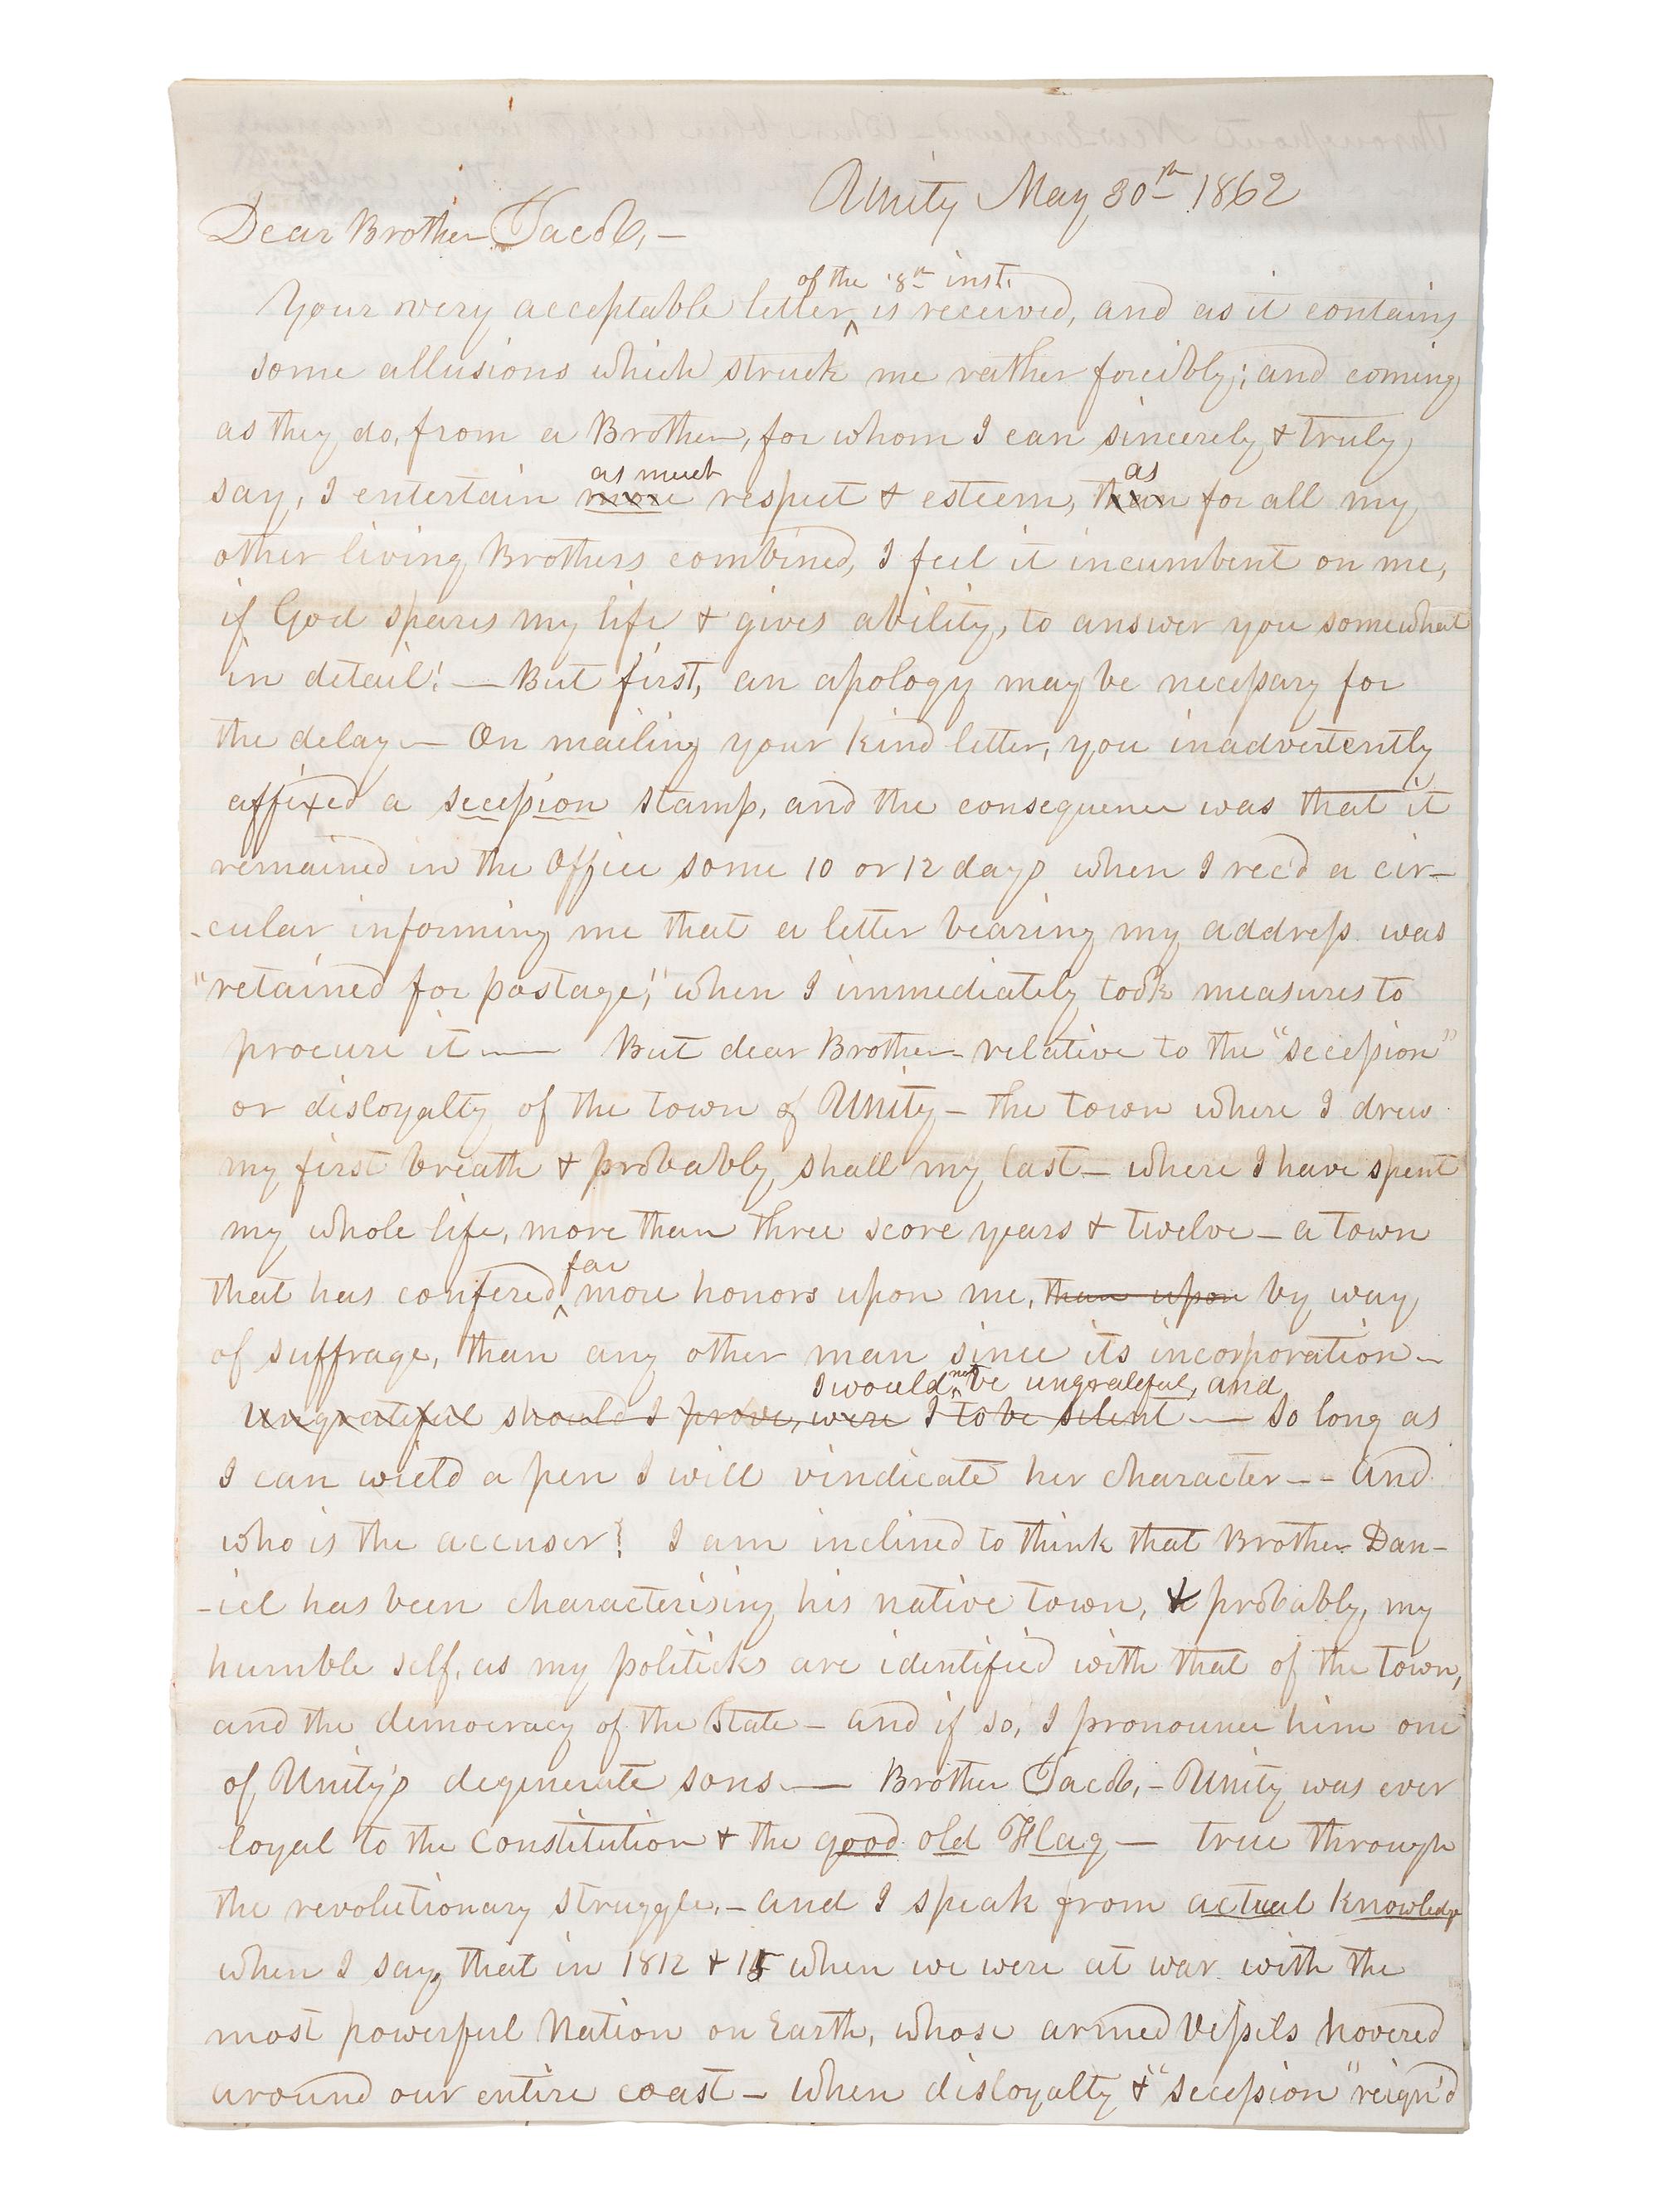 Unity May 30th 1862
Dear Brother Jacob, —
of the '8th inst.
Your very acceptable letter ^ is received, and as it contains
some allusions which struck me rather forcibly; and coming
as they do, from a Brother, for whom I can sincerely & truly
as much as
say, I entertain more respect & esteem, than for all my
other living Brothers combined, I feel it incumbent on me,
if God spares my life & gives ability, to answer you somewhat
in detail! — But first, an apology may be necessary for
the delay — On mailing your kind letter, you inadvertently
affixed a secession stamp, and the consequence was that it
remained in the Office some 10 or 12 days when I rec'd a cir-
-cular informing me that a letter bearing my address was
"retained for postage," when I immediately took measures to
procure it — But dear Brother relative to the "secession"
or disloyalty of the town of Unity — the town where I drew
my first breath & probably shall my last — where I have spent
my whole life, more than three score years & twelve — a town
far
that has confered ^ more honors upon me, than upon by way
of suffrage, than any other man since its incorporation —
I would ^ not be ungrateful, and
Ungrateful should I prove, were I to be silent — So long as
I can wield a pen I will vindicate her character - - And
who is the accuser? I am inclined to think that Brother Dan-
-iel has been characterising his native town, & probably, my
humble self, as my politicks are identified with that of the town,
and the democracy of the State — and if so, I pronounce him one
of Unity's degenerate sons — Brother Jacob, — Unity was ever
loyal to the Constitution & the good old Flag — true through
the revolutionary struggle, — and I speak from actual knowledge
when I say, that in 1812 & 15 when we were at war with the
most powerful Nation on Earth, whose armed Vessels hovered
around our entire coast — when disloyalty & "secession" reign'd